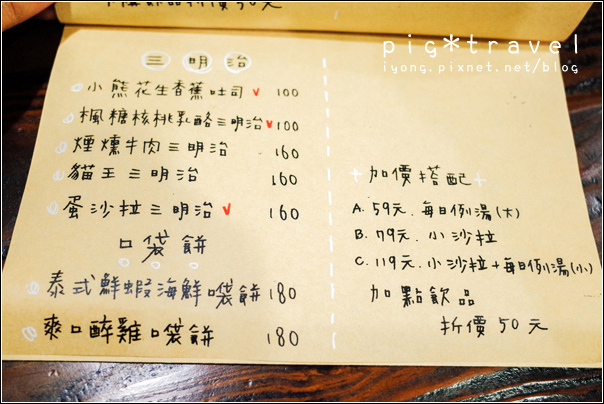 pig*travel
iyong.pixnet.net/blog
三明治
小熊花生香蕉吐司 v 100
楓糖核桃乳酪三明治 v 100
煙燻牛肉三明治 160
貓王三明治 160
蛋沙拉三明治 v 160
口袋餅
泰式鮮蝦海鮮口袋餅 180
爽口醉雞口袋餅 180
+加價搭配+
A. 59元. 每日例湯(大)
B. 79元. 小沙拉
C. 119元. 小沙拉+每日例湯(小)
加點飲品
折價50元